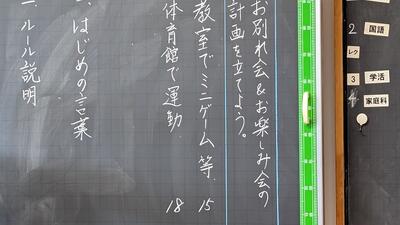 お別れ会&お楽しみ会の
計画を立てよう。
教室でミニゲーム等 15
体育館で運動 18
、はじめの言葉
ルール説明
2 国語
レク
3 学活
4 家庭科